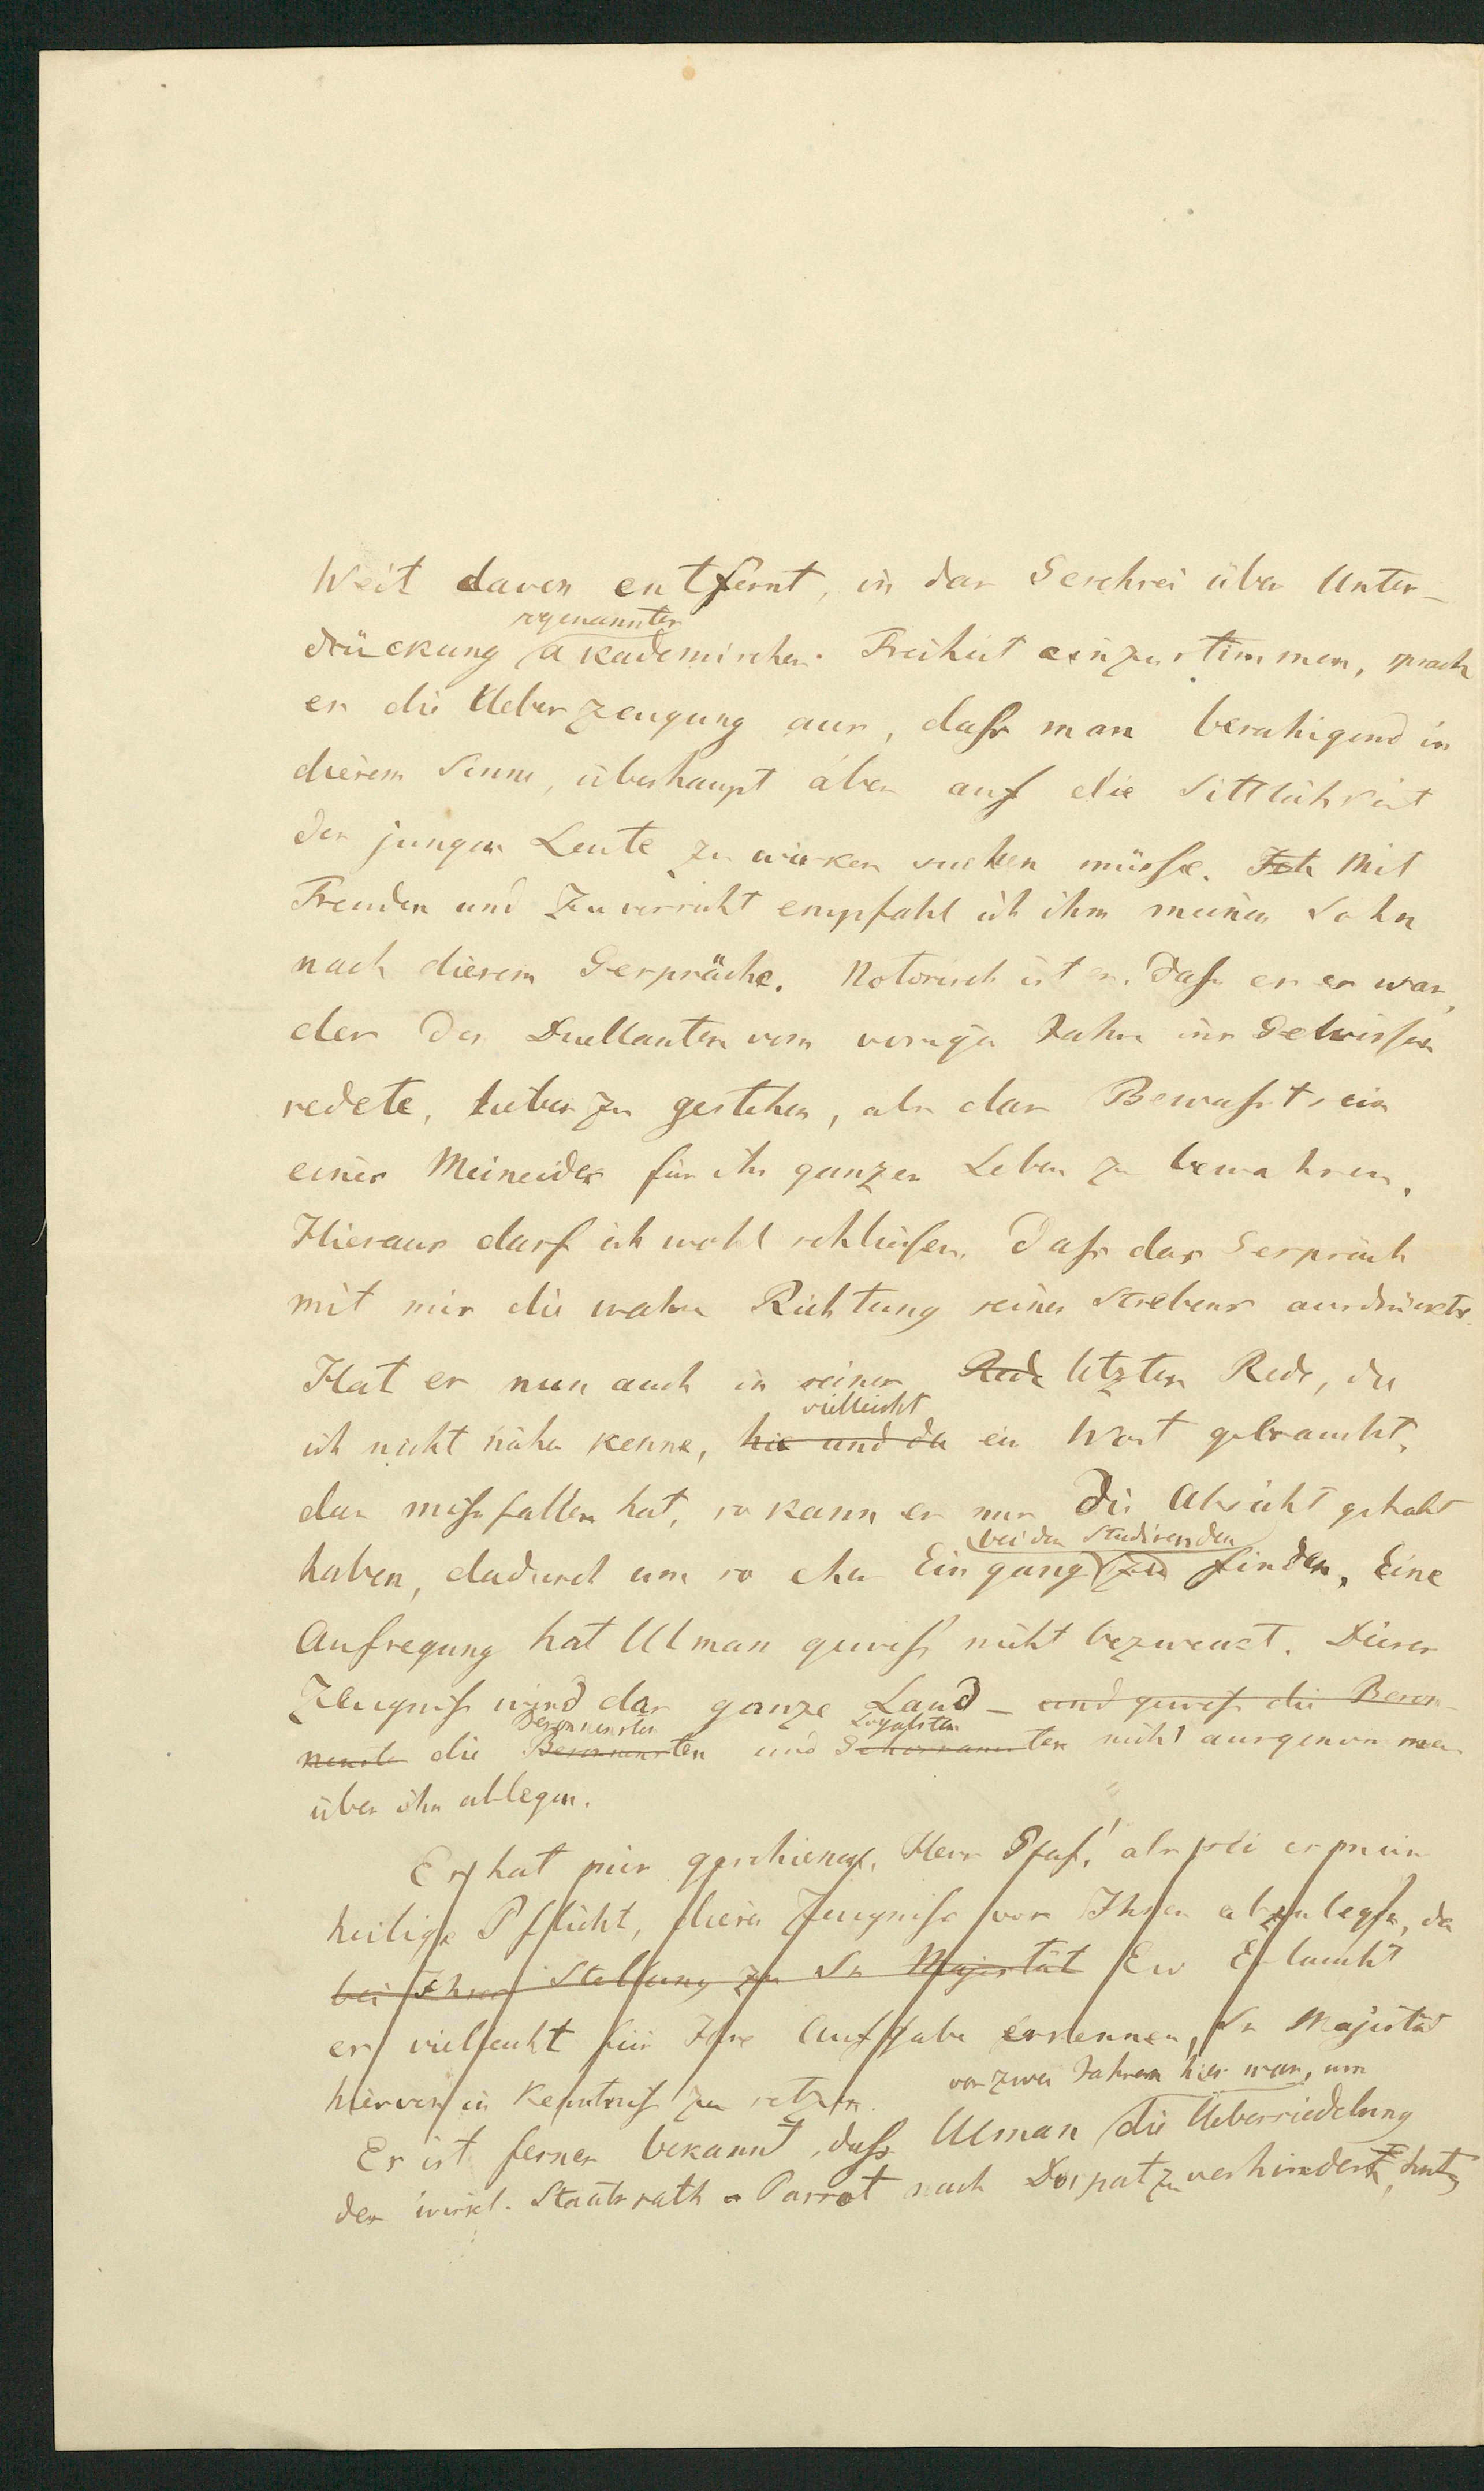 Weit davon entfernt, in das Geschrei über Unter-
drückung sogenannter akademischer Freiheit einzustimmen, sprach
er die Ueberzeugung aus, dass man beruhigend in
diesem Sinne, überhaupt aber auf die Sittlichkeit
der jungen Leute zu wirken suchen müsse. Ich Mit
Freuden und Zuversicht empfahl ich ihm meinen Sohn
nach diesem Gespräche. Notorisch ist es, dass er es war,
der den Duellanten vom vorigen Jahre ins Gewissen
redete, lieber zu gestehen, als das Bewusstsein
eines Meineides für ihr ganzes Leben zu bewahren.
Hieraus darf ich wohl schliessen, dass das Gespräch
mit mir die wahre Richtung seines Strebens ausdrückte.
Hat er nun auch in seiner Rede letzten Rede, die
vielleicht
ich nicht näher kenne, hie und da ein Wort gebraucht,
das missfallen hat, so kann er nur die Absicht gehabt
bei den Studirenden
haben, dadurch um so eher Eingang zu finden. Eine
Aufregung hat Ulman gewiss nicht bezweckt. Dieses
Zeugniss wird das ganze Land – und gewiss die Beson-
Besonnensten Loyalsten
nenste die Besonnensten und nicht ausgenommen
über ihn ablegen.
Es hat mir geschienen, Herr Graf! als sei es meine
heilige Pflicht, dieses Zeugniss vor Ihnen abzulegen, da
bei Ihrer Stellung zu Sr Majestät Ew Erlaucht
es vielleicht für Ihre Aufgabe erkennen, Sr Majestät
hiervon in Kenntniss zu setzen.
vor zwei Jahren hier war, um
Es ist ferner bekannt, dass Ulman die Uebersiedelung
des wirkl. Staatsrath Parrot nach Dorpat zu verhindert, hat